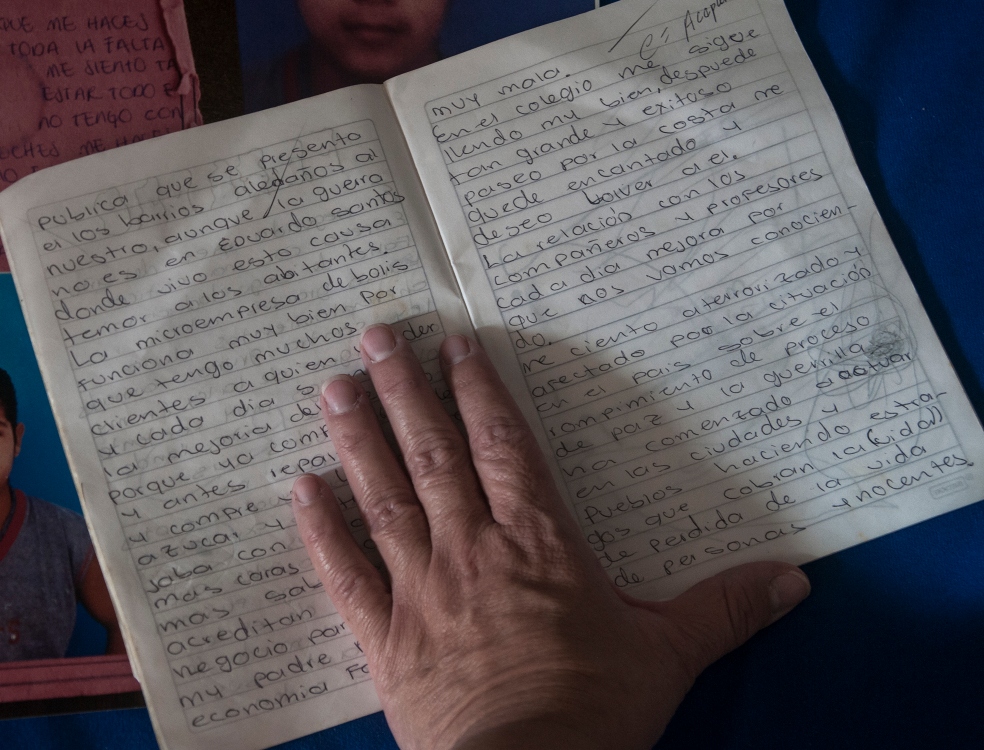 QUE ME HACES
TODA LA FALTA
ME SIENTO TA
ESTAR TODO E
NO TENGO CON
OCHES ME HA
publica que se presento
el los barrios aledaños al
nuestro, aunque la guerra
no es en Eduardo santos
donde vivo esto causa
temor a los abitantes.
La microempresa de bolis
funciona muy bien por
que tengo muchos
clientes a quien der
y cada dia s
la mejoria de
porque ya comp
y antes repar
y compre y
azucar y
saba con
mas caras
mas sab
acreditan
negocio por
my padre
economia Fa
muy mala.
En el colegio me sigue
llendo muy bien, despuede
tan grande y exitoso
paseo por la costa me
quede encantado y
deseo bolver a el.
La relación con los
compañeros y profesores
cada dia mejora por
que nos vamos conocien-
do.
me ciento aterrorizado y
afectado por la cituación
en el pais sobre el
rompimiento de proceso
de paz y la guerrilla
ha comenzado a actuar
en las ciudades y
pueblos haciendo estra-
gos que cobran la (vida))
de perdida de la vida
de personas ynocentes.